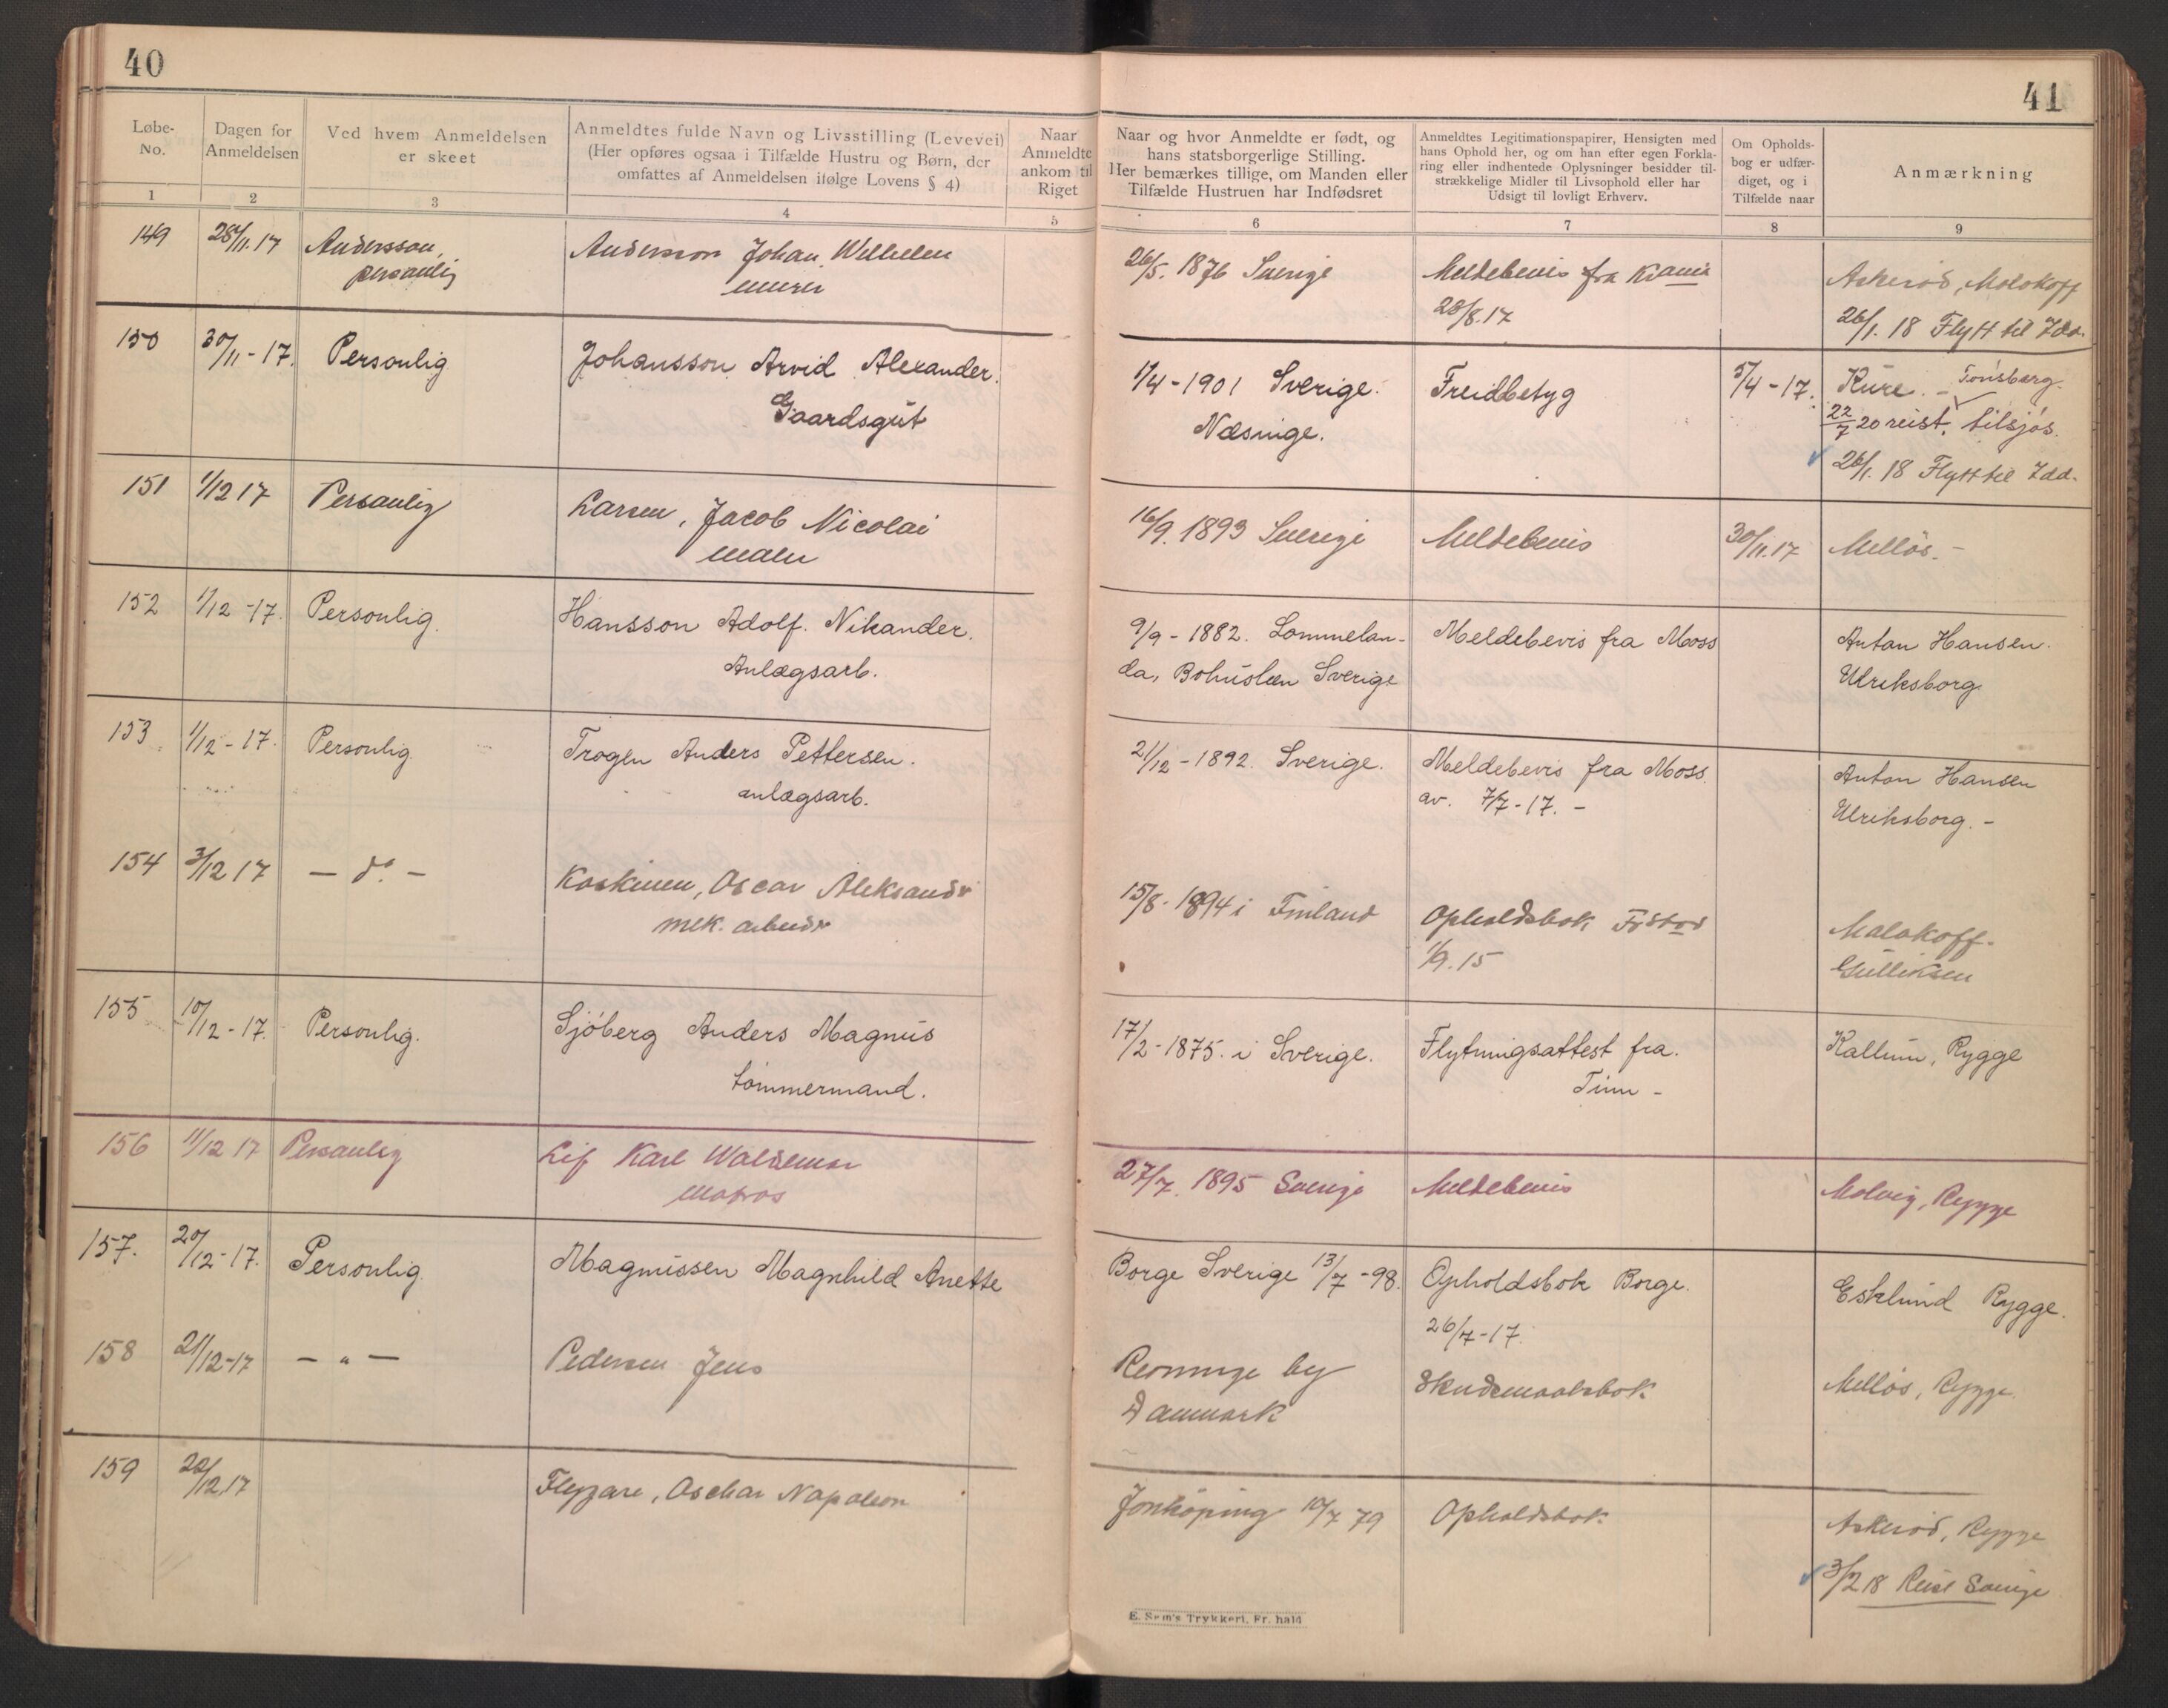 40
Løbe-No.
Dagen for Anmeldelsen
Ved hvem Anmeldelsen er skeet
Anmeldtes fulde Navn og Livsstilling (Levevei)
(Her opføres ogsaa i Tilfælde Hustru og Børn, der
omfattes af Anmeldelsen ifølge Lovens § 4)
Naar Anmeldte ankom til Riget
1 2 3 4 5
149 28/11.17 Andersson, Anderson Johan Wilhelm
personlig murer
150 30/11-17. Personlig Johansson Arvid Alexander.
Gaardsgut
151 1/12 17 Personlig Larsen, Jacob Nicolai
maler
152 1/12-17. Personlig. Hansson Adolf. Nikander.
Anlægsarb.
153 1/12-17. Personlig. Trogen Anders Pettersen.
anlægsarb.
154 3/12 17 — do — Koskinen, Oscar Aleksandr
mek. arbeidr
155 10/12-17. Personlig. Sjöberg Anders Magnus
tømmermand.
156 11/12 17 Personlig Lif Karl Waldemar
matros
157. 20/12-17. Personlig. Magnussen Magnhild Anette
158 21/12-17 — " — Pedersen Jens
159 22/12.17 Flyzare, Oschar Napoleon
41
Naar og hvor Anmeldte er født, og
hans statsborgerlige Stilling.
Her bemærkes tillige, om Manden eller
Tilfælde Hustruen har Indfødsret
Anmeldtes Legitimationspapirer, Hensigten med
hans Ophold her, og om han efter egen Forkla-
ring eller indhentede Oplysninger besidder til-
strækkelige Midler til Livsophold eller har
Udsigt til lovligt Erhverv.
Om Opholds-
bog er udfær-
diget, og i
Tilfælde naar
Anmærkning
6 7 8 9
26/5. 1876 Sverige Meldebevis fra Kr.ania Askerød, Molokoff
28/8.17 26/1. 18 Flytt til Idd.
1/4-1901 Sverige. Freidbetyg 5/4-17. Kure. - Tønsberg.
Næsinge. 22/7 20 reist. tilsjøs.
26/1. 18 Flytt til Idd.
16/9. 1893 Sverige Meldebevis 30/11.17 Melløs. -
9/9-1882. Lommelan- Meldebevis fra Moss Anton Hansen.
da, Bohuslæn Sverige Ulriksborg.
21/12-1892. Sverige. Meldebevis fra Moss. Anton Hansen
av. 7/7-17. - Ulriksborg. -
15/8-1894 i Finland Opholdsbok Frstad Malakoff.
1/9.15 Gulliksen
17/2-1875. i Sverige. Flytningsattest fra. Kallum, Rygge
Tinn -
27/7. 1895 Sverige Meldebevis Molvig, Rygge
Borge Sverige 13/7-98. Opholdsbok Borge. Esklund Rygge.
26/7-17.
by Skudsmaalsbok Melløs, Rygge.
Danmark
Jönköping 10/7 79 Opholdsbok Askerød, Rygge
3/2 18 Reist Sverige
E. Sem's Trykkeri, Fr. hald